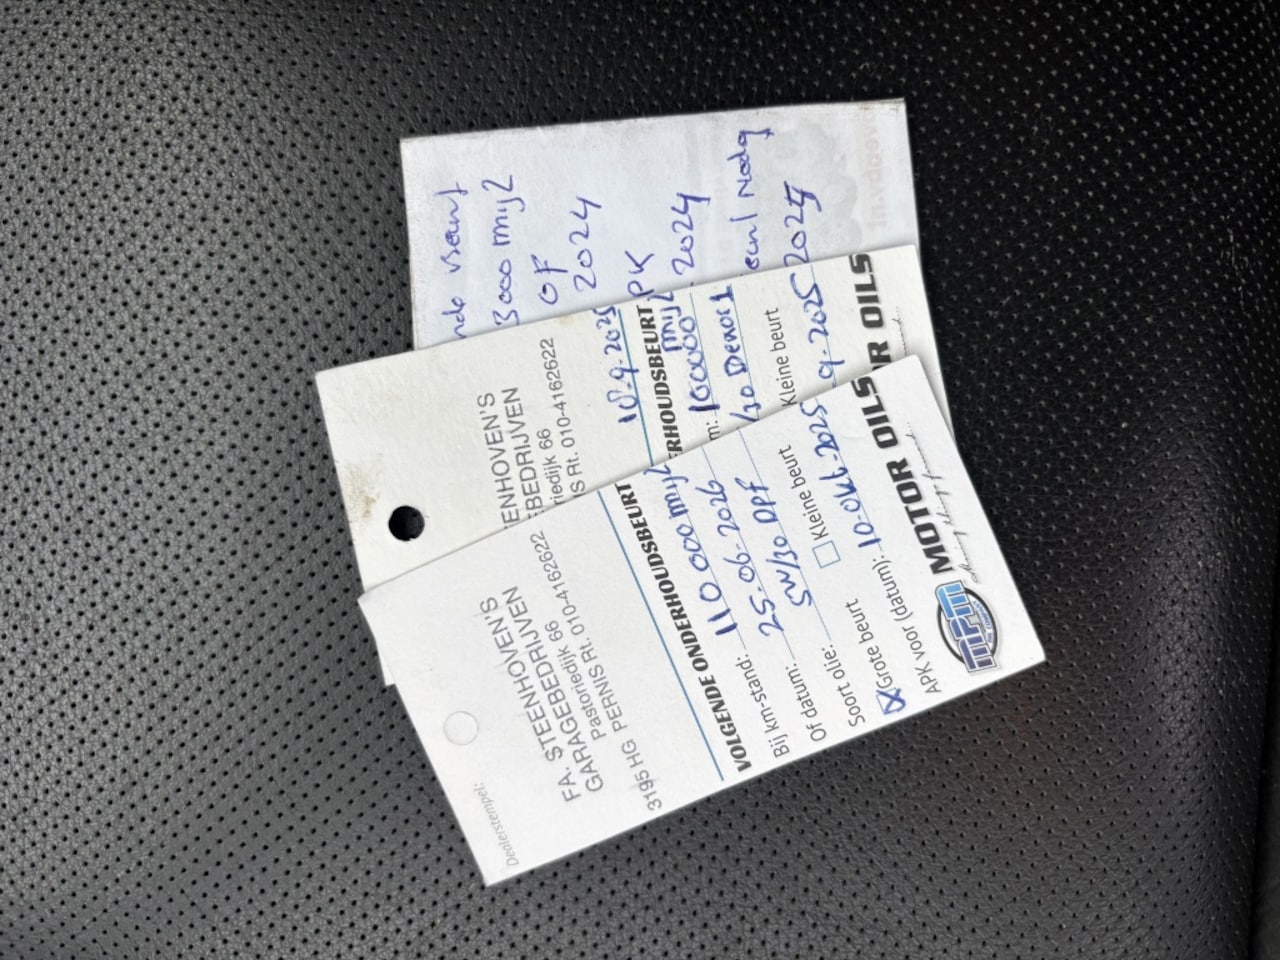 Dealerstempel:
FA. STEENHOVEN'S
GARAGEBEDRIJVEN
Pastoriedijk 66
3195 HG PERNIS Rt. 010-4162622
VOLGENDE ONDERHOUDSBEURT
Bij km-stand: 110 000 mijl
Of datum: 25-06-2026
Soort olie: 5W/30 DPF
Grote beurt Kleine beurt
APK voor (datum): 10-okt-2025
MPM MOTOR OILS
ENHOVEN'S
EBEDRIJVEN
riedijk 66
S Rt. 010-4162622
10-9-2025
ERHOUDSBEURT
mijl
m: 100000
/30
Kleine beurt
-9-2025
R OILS
3000 mijl
OF
2024
PK
2024